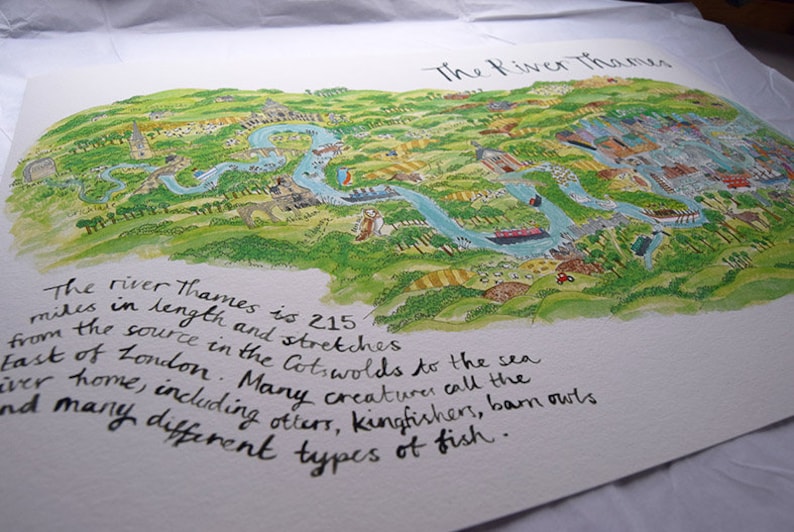 The River Thames
The river Thames is 215
miles in length and stretches
from the source in the Cotswolds to the sea
East of London. Many creatures call the
home, including otters, kingfishers, barn owls
many different types of fish.